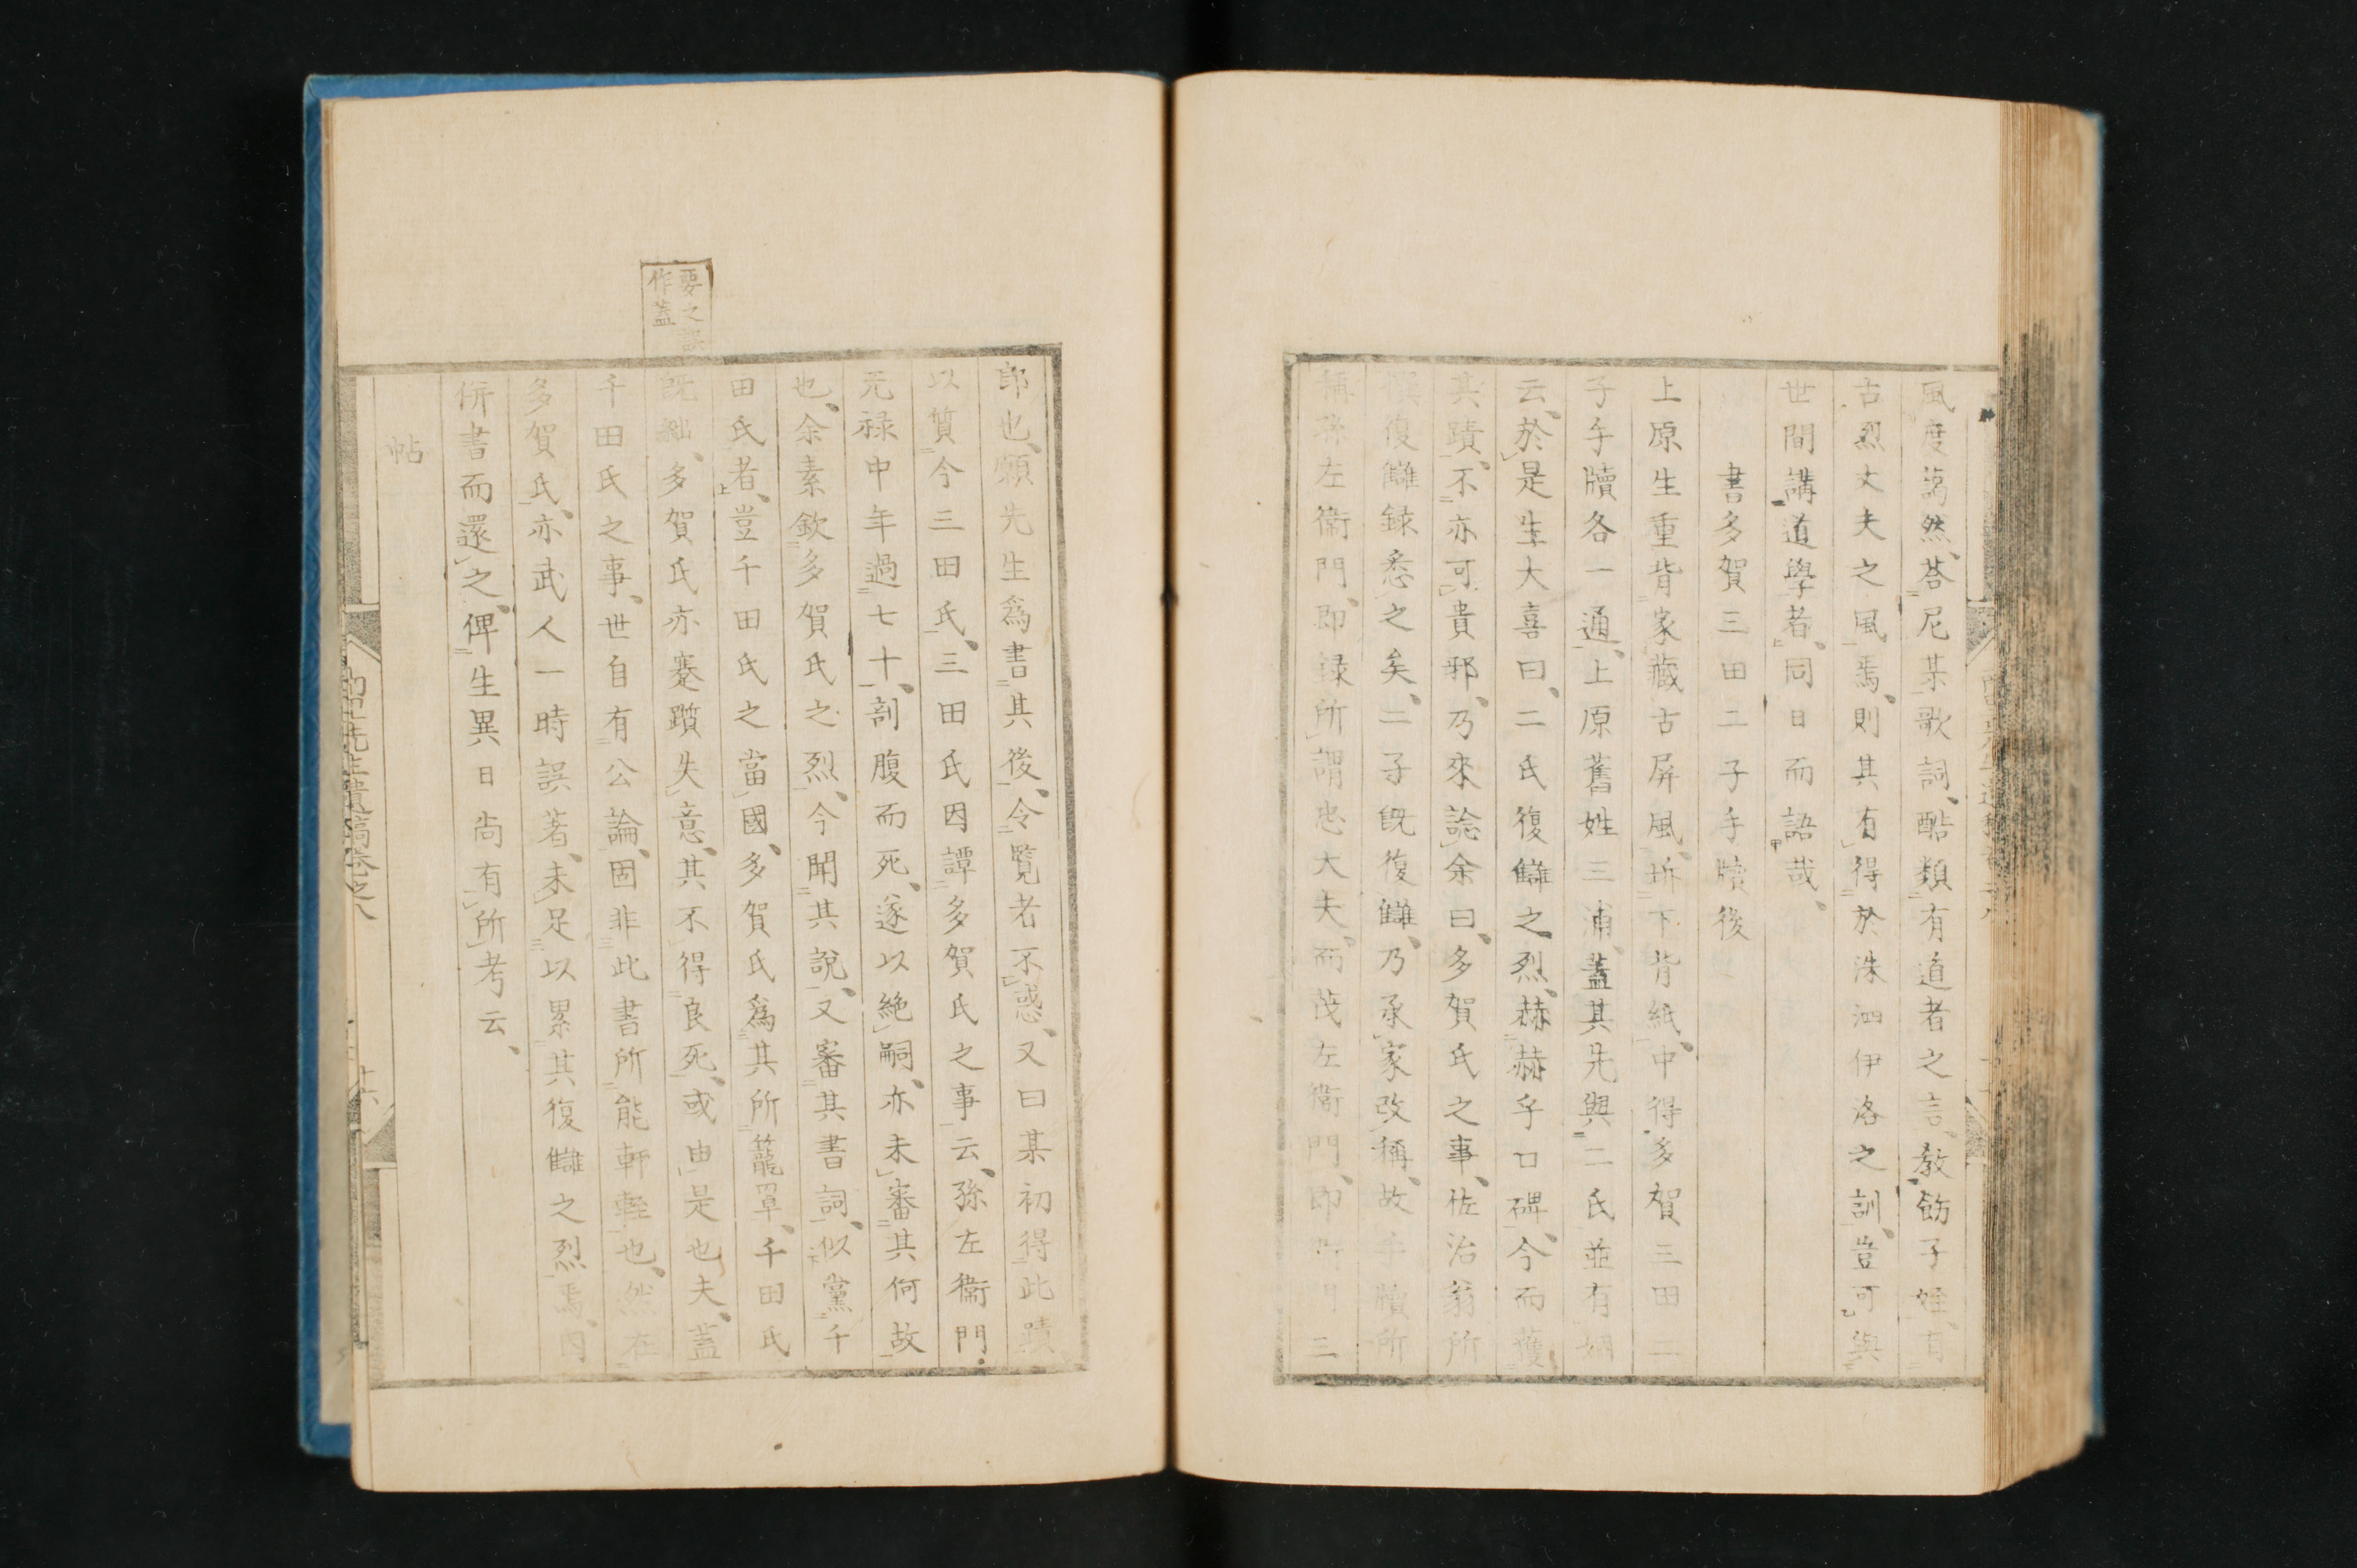 風度藹然、荅尼某歌詞、酷類有道者之言、教飭子姪、有
古烈丈夫之風焉、則其有得於洙泗伊洛之訓、豈可與
世間講道學者、同日而語哉、
書多賀三田二子手牘後
上原生重背家藏古屏風、拆下背紙、中得多賀三田二
子手牘各一通、上原舊姓三浦、蓋其先與二氏並有姻
云、於是生大喜曰、二氏復讎之烈、赫赫乎口碑、今而獲
其蹟、不亦可貴邪、乃來諗余曰、多賀氏之事、佐治翁所
撰復讎錄悉之矣、二子既復讎、乃承家改稱、故手牘所
稱孫左衞門、即錄所謂忠大夫、而茂左衞門、即衞門三
郎也、願先生爲書其後、令覧者不惑、又曰某初得此蹟
以質今三田氏、三田氏因譚多賀氏之事云、孫左衞門
元禄中年過七十、剖腹而死、遂以絶嗣、亦未審其何故
也、余素欽多賀氏之烈、今聞其說、又審其書詞、似黨千
田氏者、豈千田氏之當國、多賀氏爲其所籠罩、千田氏
既絀、多賀氏亦蹇躓失意、其不得良死、或由是也夫、蓋
千田氏之事、世自有公論、固非此書所能軒輊也、然在
多賀氏、亦武人一時誤著、未足以累其復讎之烈焉、因
併書而還之、俾生異日尚有所考云、
帖
要之誤
作蓋
先生遺稿卷之八